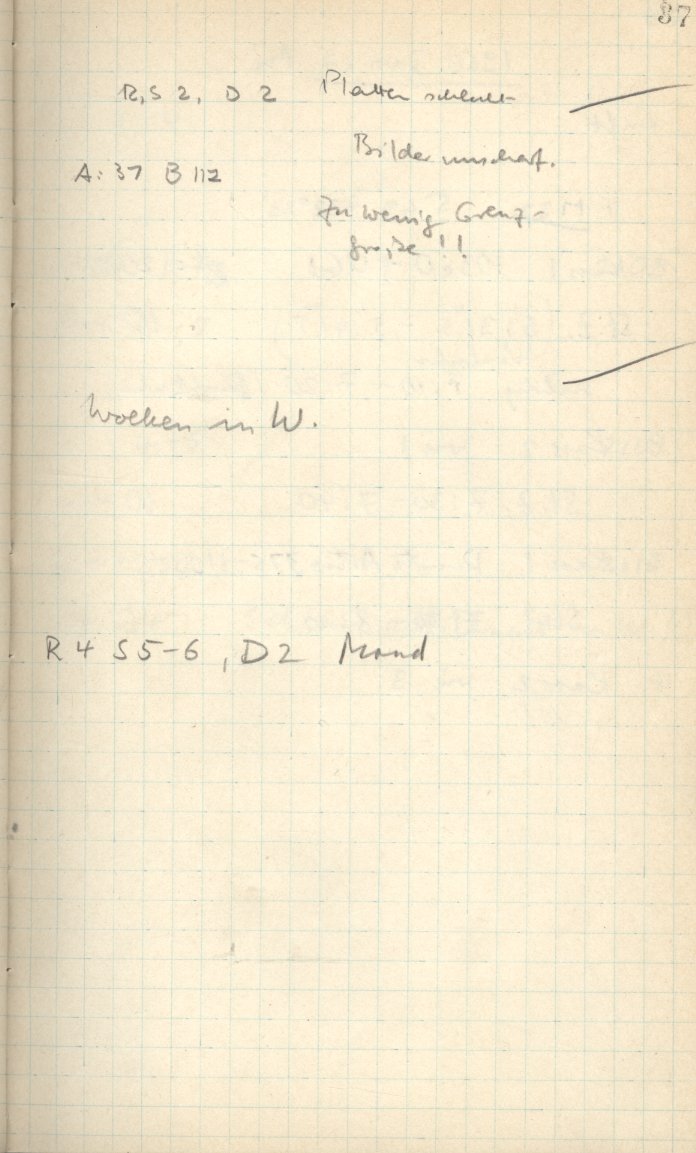 87
R, S 2, D 2 Platten schlecht
Bilder unscharf.
A: 37 B 112
Zu wenig Grenz-
größe!!
Wolken in W.
R 4 S 5-6, D 2 Mond